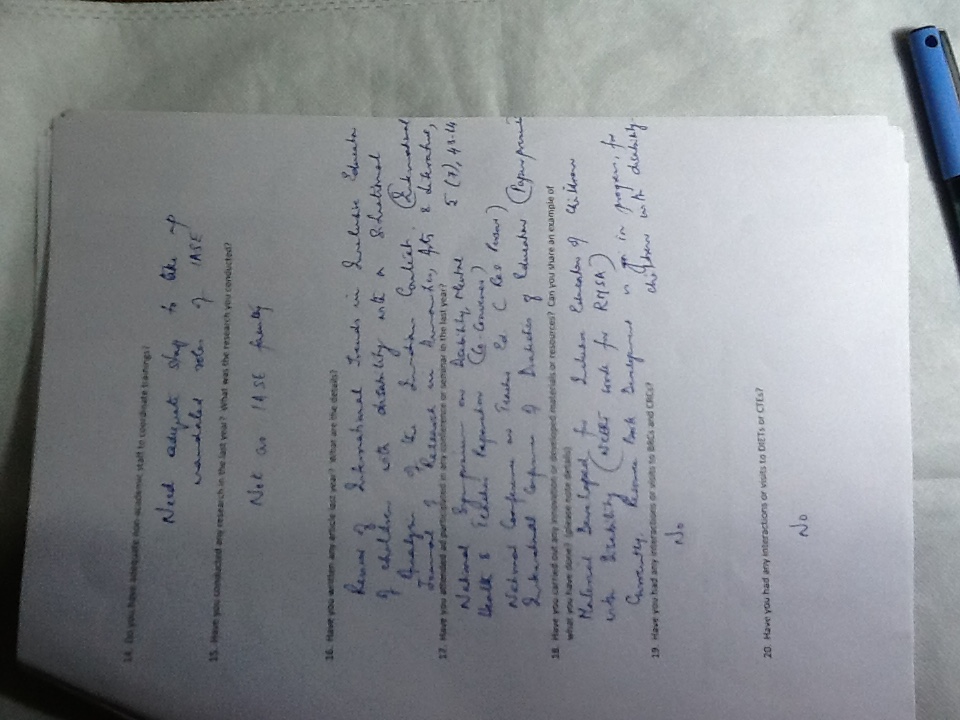 14. Do you have adequate non-academic staff to coordinate trainings?
Need adequate staff to take up
mandated roles of IASE
15. Have you conducted any research in the last year? What was the research you conducted?
Not as IASE faculty
16. Have you written any article last year? What are the details?
Review of International Trends in Inclusive Education
of children with disability with a Situational
Analysis of the Indian Context. (International
Journal of Research in Humanities, Arts & Literature,
5 (7), 43-14
17. Have you attended ad participated in any conference or seminar in the last year?
National Symposium on Disability, Mental
Health & Teacher Preparation (Co-Convener)
National Conference on Teacher Ed. C Res Person)
International Conference of Dialectics of Education (Paper
18. Have you carried out any innovation or developed materials or resources? Can you share an example of
what you have done? (please note details)
Material Developed for Inclusive Education of Children
with Disability ( work for RMSA)
Currently, Resource Book Development is in progress, for
children with disability.
19. Have you had any interactions or visits to BRCs and CRCs?
No
20. Have you had any interactions or visits to DIETs or CTEs?
No